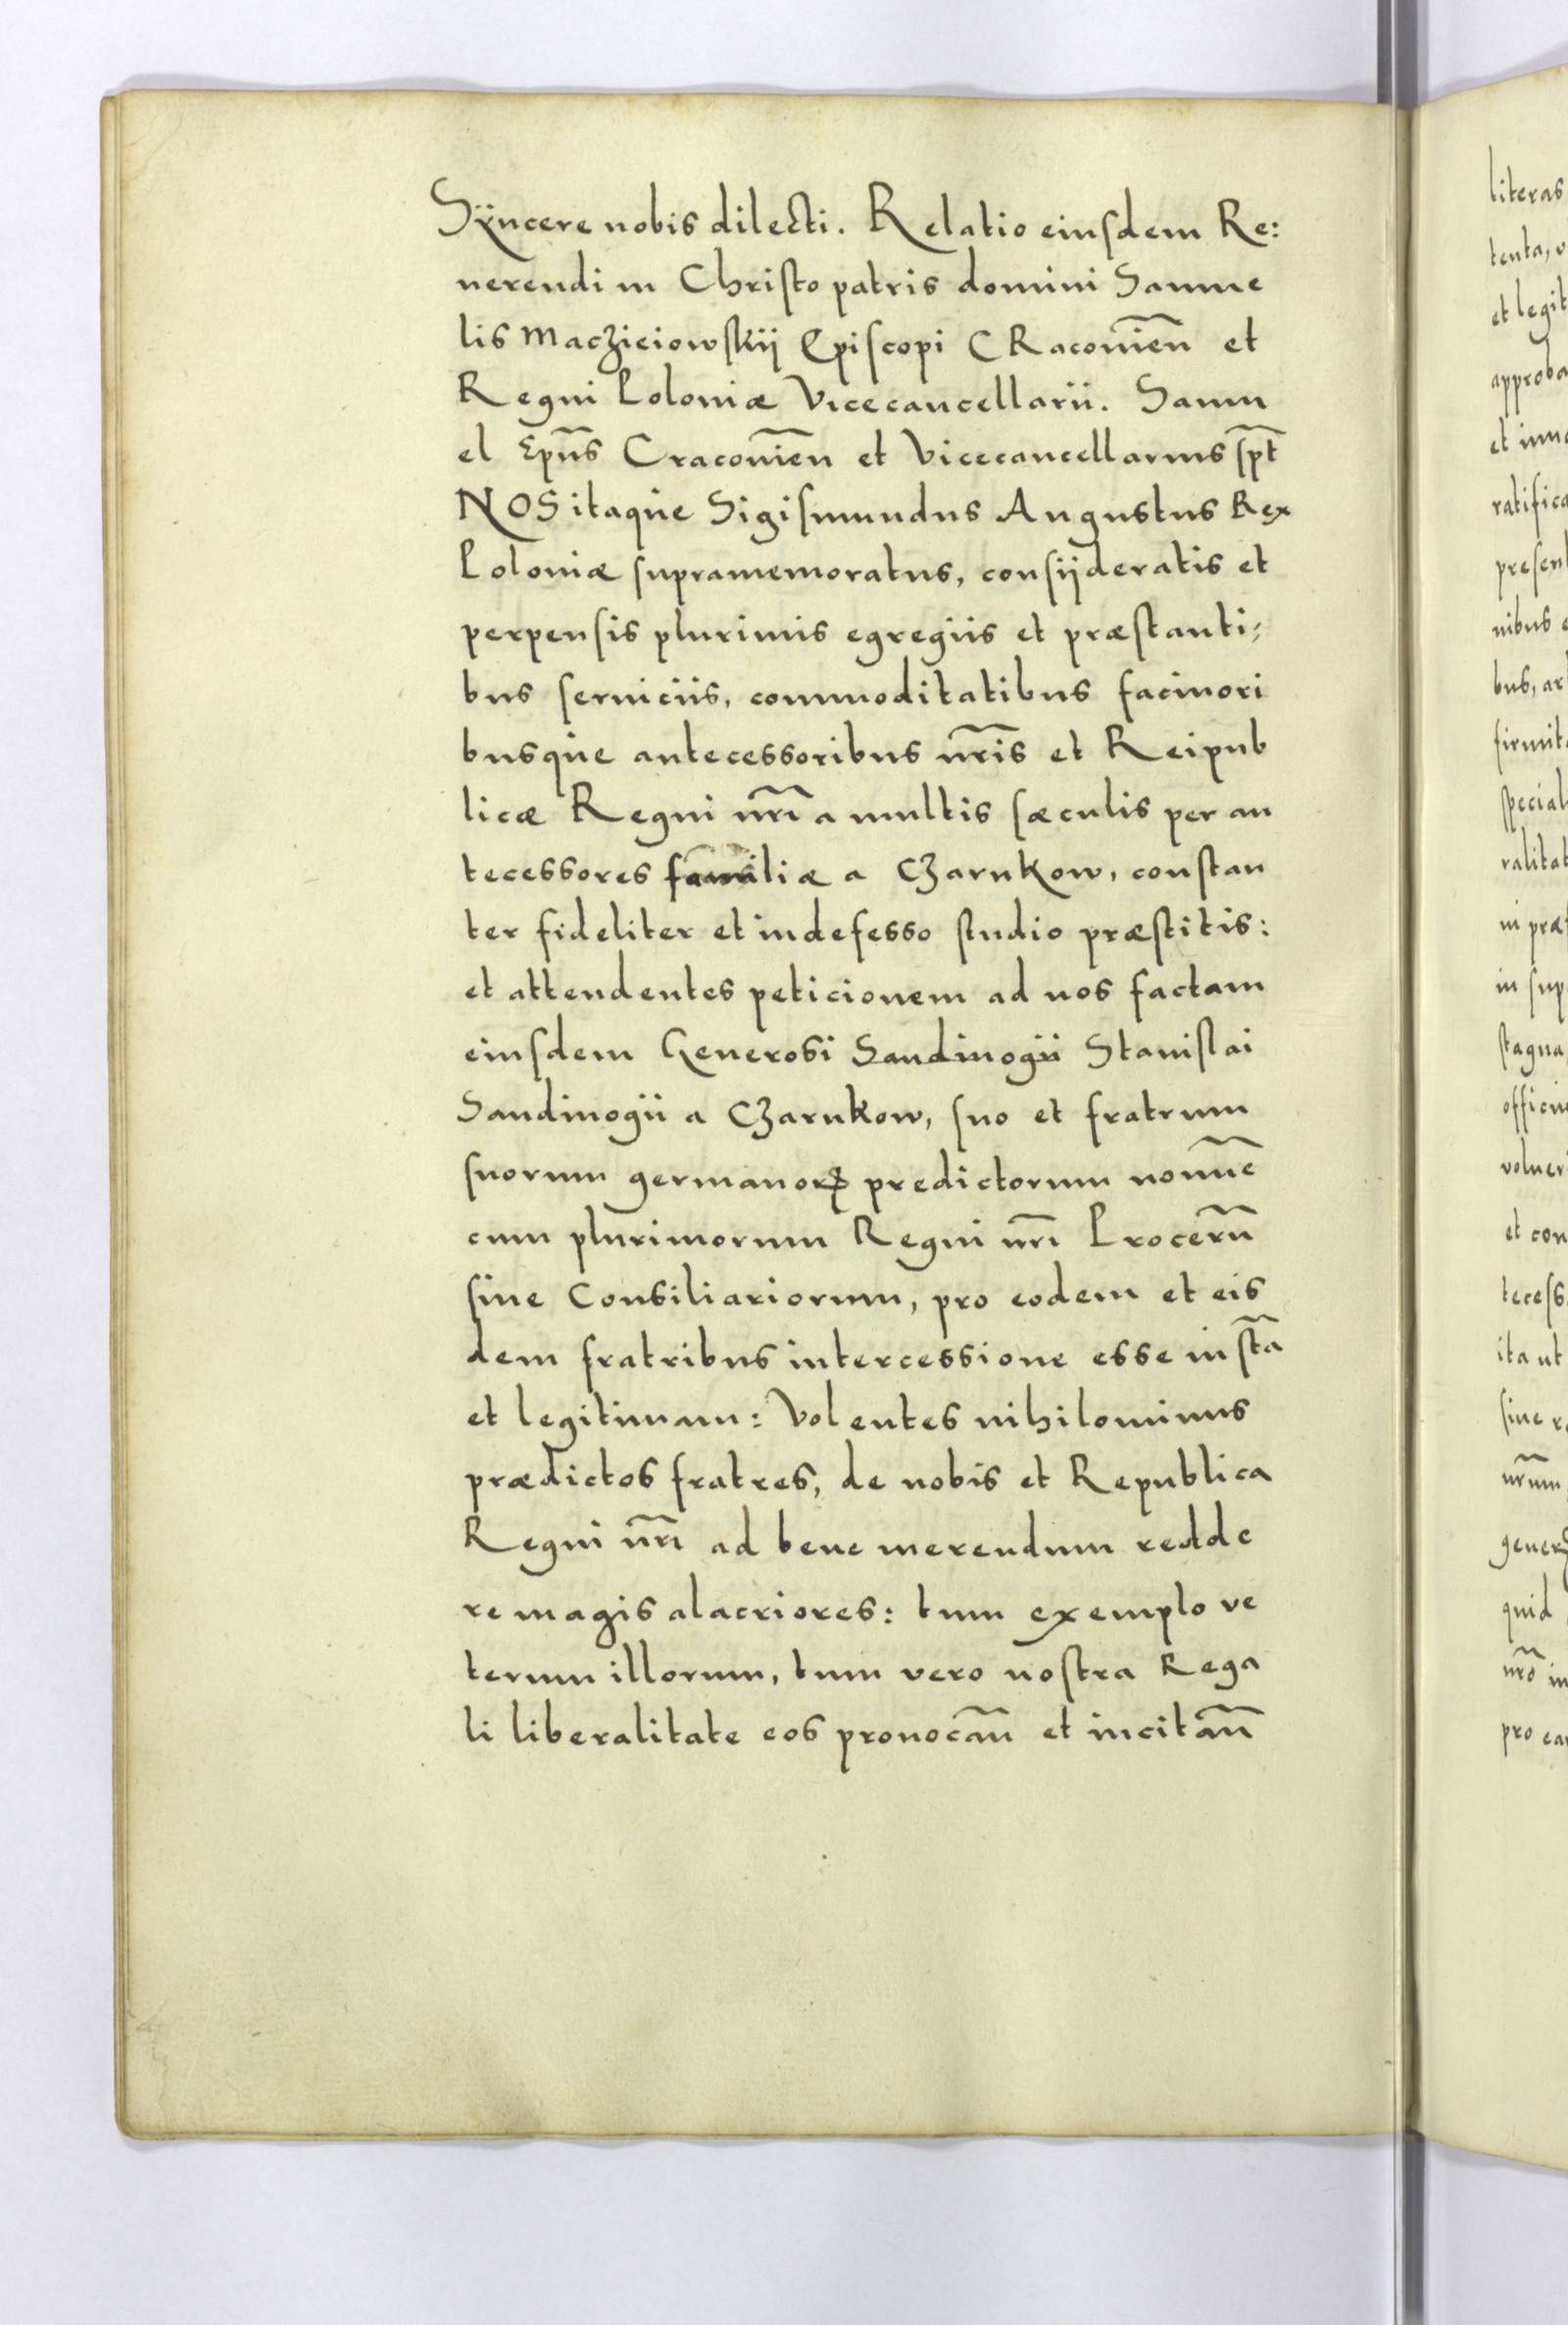 Sÿncere nobis dilecti. Relatio eiusdem Re:
uerendi in Christo patris domini Samue
lis Macziciowskij Episcopi CRacouień et
Regni Poloniæ Vicecancellarii. Samu
el Epūs Cracouień et Vicecancellarius spt̄
NOS itaque Sigismundus Augustus Rex
Poloniæ supramemoratus, consijderatis et
perpensis plurimis egregiis et præstanti;
bus seruiciis, commoditatibus facinori
busque antecessoribus nr̄is et Reipub
licæ Regni nr̄i a multis sæculis per an
tecessores familiæ a Czarnkow, constan
ter fideliter et indefesso studio præstitis:
et attendentes peticionem ad nos factam
eiusdem Generosi Sandiuogii Stanislai
Sandiuogii a Czarnkow, suo et fratrum
suorum germanorꝝ predictorum nomīe
cum plurimorum Regni nr̄i Procerū
siue Consiliariorum, pro eodem et eis
dem fratribus intercessione esse iustā
et legitimam: Volentes nihilominus
prædictos fratres, de nobis et Republica
Regni nr̄i ad bene merendum redde
re magis alacriores: tum exemplo ve
terum illorum, tum vero nostra Rega
li liberalitate eos prouocāń et incitāń
literas
tenta,
et legit
approba
et inno
ratifica
presen
nibus
bus, ar
firmit
special
ralitat
in præ
in sup
stagna
officin
voluer
et con
tecess
ita ut
siue
nr̄um
gener
quid
nr̄o in
pro ea